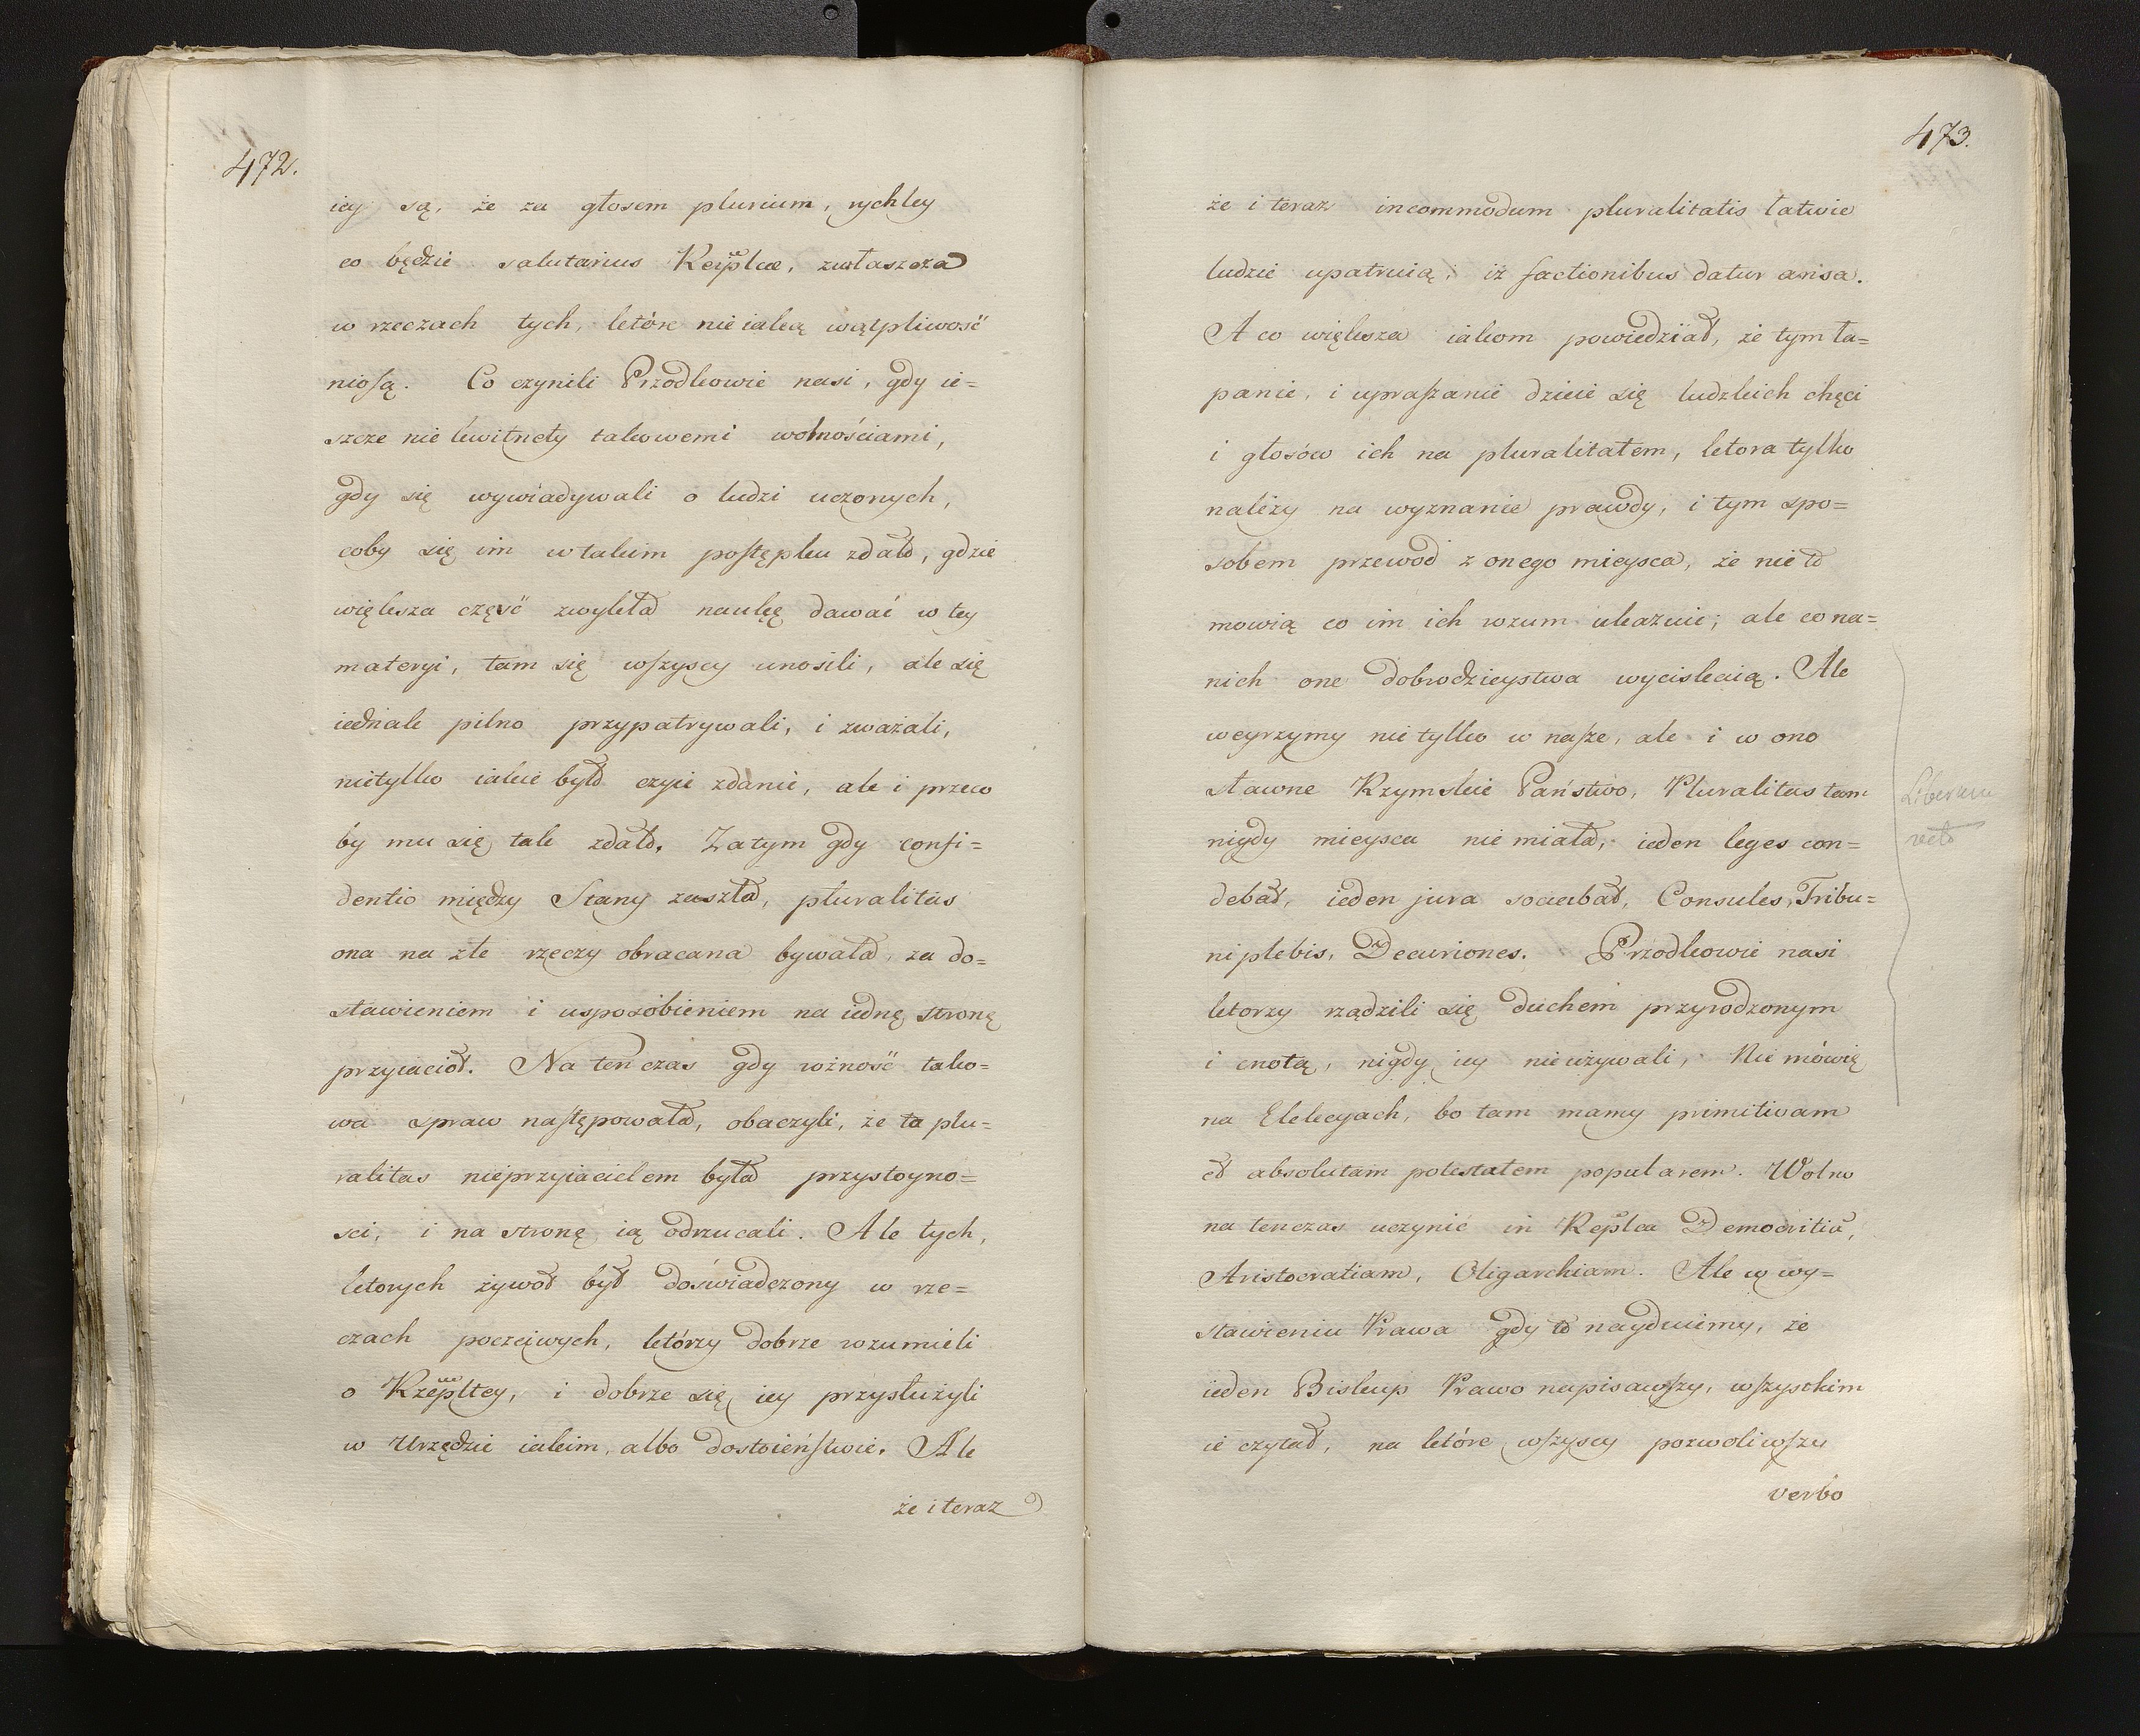 472.
iey są, że za głosem plurium, rychley
co będzie salutarius Reiplcæ, zwłaszcza
w rzeczach tych, które nieiaką wątpliwość
nioſą. Co czynili Przodkowie nasi, gdy ie=
szcze nie kwitnęły takowemi wolnościami,
gdy się wywiadywali o ludzi uczonych,
coby się im w takim poſtępku zdało, gdzie
większa część zwykła naukę dawać w tey
materyi, tam się wſzyscy unosili, ale się
iednak pilno przypatrywali, i zważali,
nietylko iakie było czyie zdanie, ale i przeco
by mu się tak zdało. Zatym gdy confi=
dentio między Stany zaszła, pluralitas
ona na złe rzeczy obracana bywała, za do=
stawieniem i usposobieniem na iednę stronę
przyiaciół. Na ten czas gdy rożność tako=
wa spraw naſtępowała, obaczyli, że ta plu=
ralitas nieprzyiacielem była przystoyno=
sci, i na stronę ią odrzucali. Ale tych,
ktorych żywot był doświadczony w rze=
czach poczciwych, którzy dobrze rozumieli
o Rzępltey, i dobrze się iey przysłużyli
w Urzędzie iakim, albo dostoieńſtwie. Ale
że i teraz
473.
że i teraz incommodum pluralitatis łatwie
ludzie upatruią; iż factionibus datur ansa.
A co większa iakom powiedział, że tym ła=
panie, i upraſzanie dzieie się ludzkich chęci
i głosów ich na pluralitatem, ktora tylko
należy na wyznanie prawdy, i tym spo=
sobem przewód z onego mieysca, że nie to
mowią co im ich rozum ukazuie; ale co na=
nich one dobrodzieystwa wyciskaią. Ale
weyrzymy nie tylko w naſze, ale i w ono
sławne Rzymskie Państwo, Pluralitas tam
nigdy mieysca nie miała, ieden leges con=
debat, ieden jura sociabat, Consules, Tribu=
ni plebis, Decuriones. Przodkowie nasi
ktorzy rządzili się duchem przyrodzonym
i cnotą, nigdy iey nieużywali, Nie mówię
na Elekcyach, bo tam mamy primitivam
et absolutam potestatem popularem. Wolno
na tenczas uczynić in Replca Democritiā,
Aristocratiam, Oligarchiam. Ale w wy=
stawieniu Prawa gdy to nayduiemy, że
ieden Biskup Prawo napisawſzy, wſzystkim
ie czytał, na które wſzyscy pozwoliwſzy
verbo
Liberum
veto